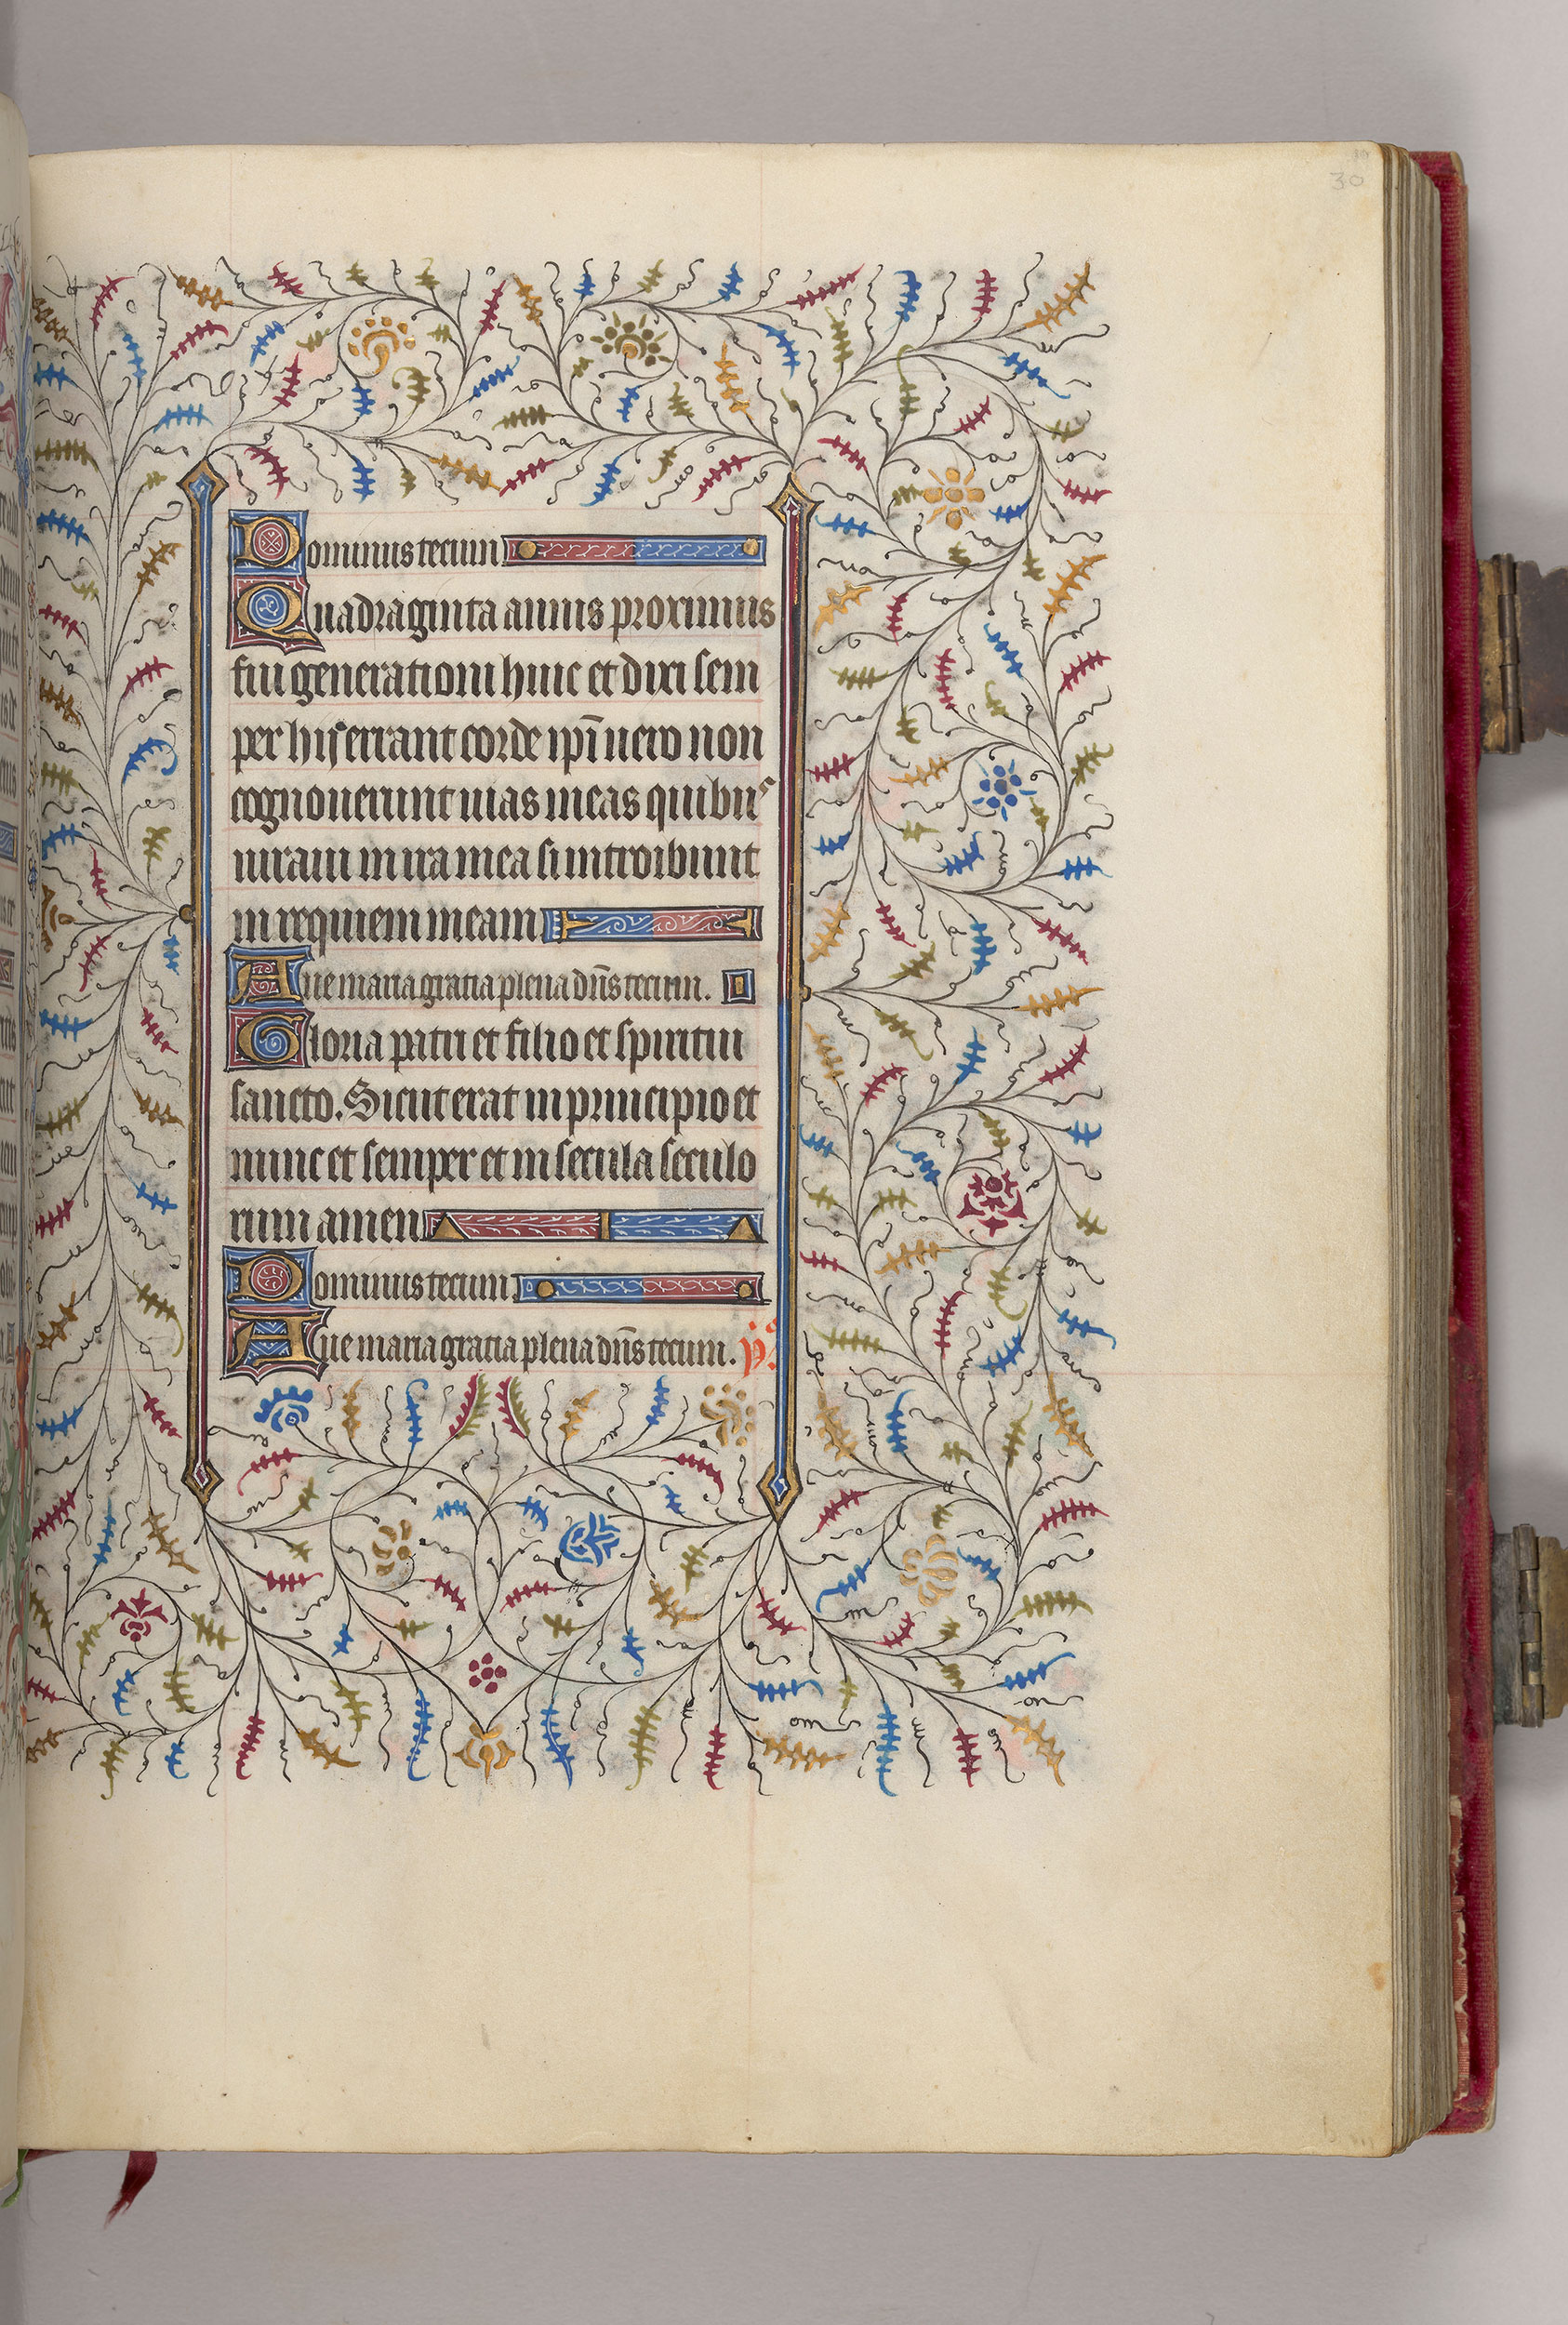 30
Dominus tecum
Quadraginta annis proximus
fui generationi huic et dixi sem
per hii errant corde ip̄i uero non
cognouerunt uias meas quibus
iuraui in ira mea si introibunt
in requiem meam
Aue maria gratia plena dn̄s tecum.
Gloria patri et filio et spiritui
sancto. Sicut erat in principio et
nunc et semper et in secula seculo
rum amen
Dominus tecum
Aue maria gratia plena dn̄s tecum. ps